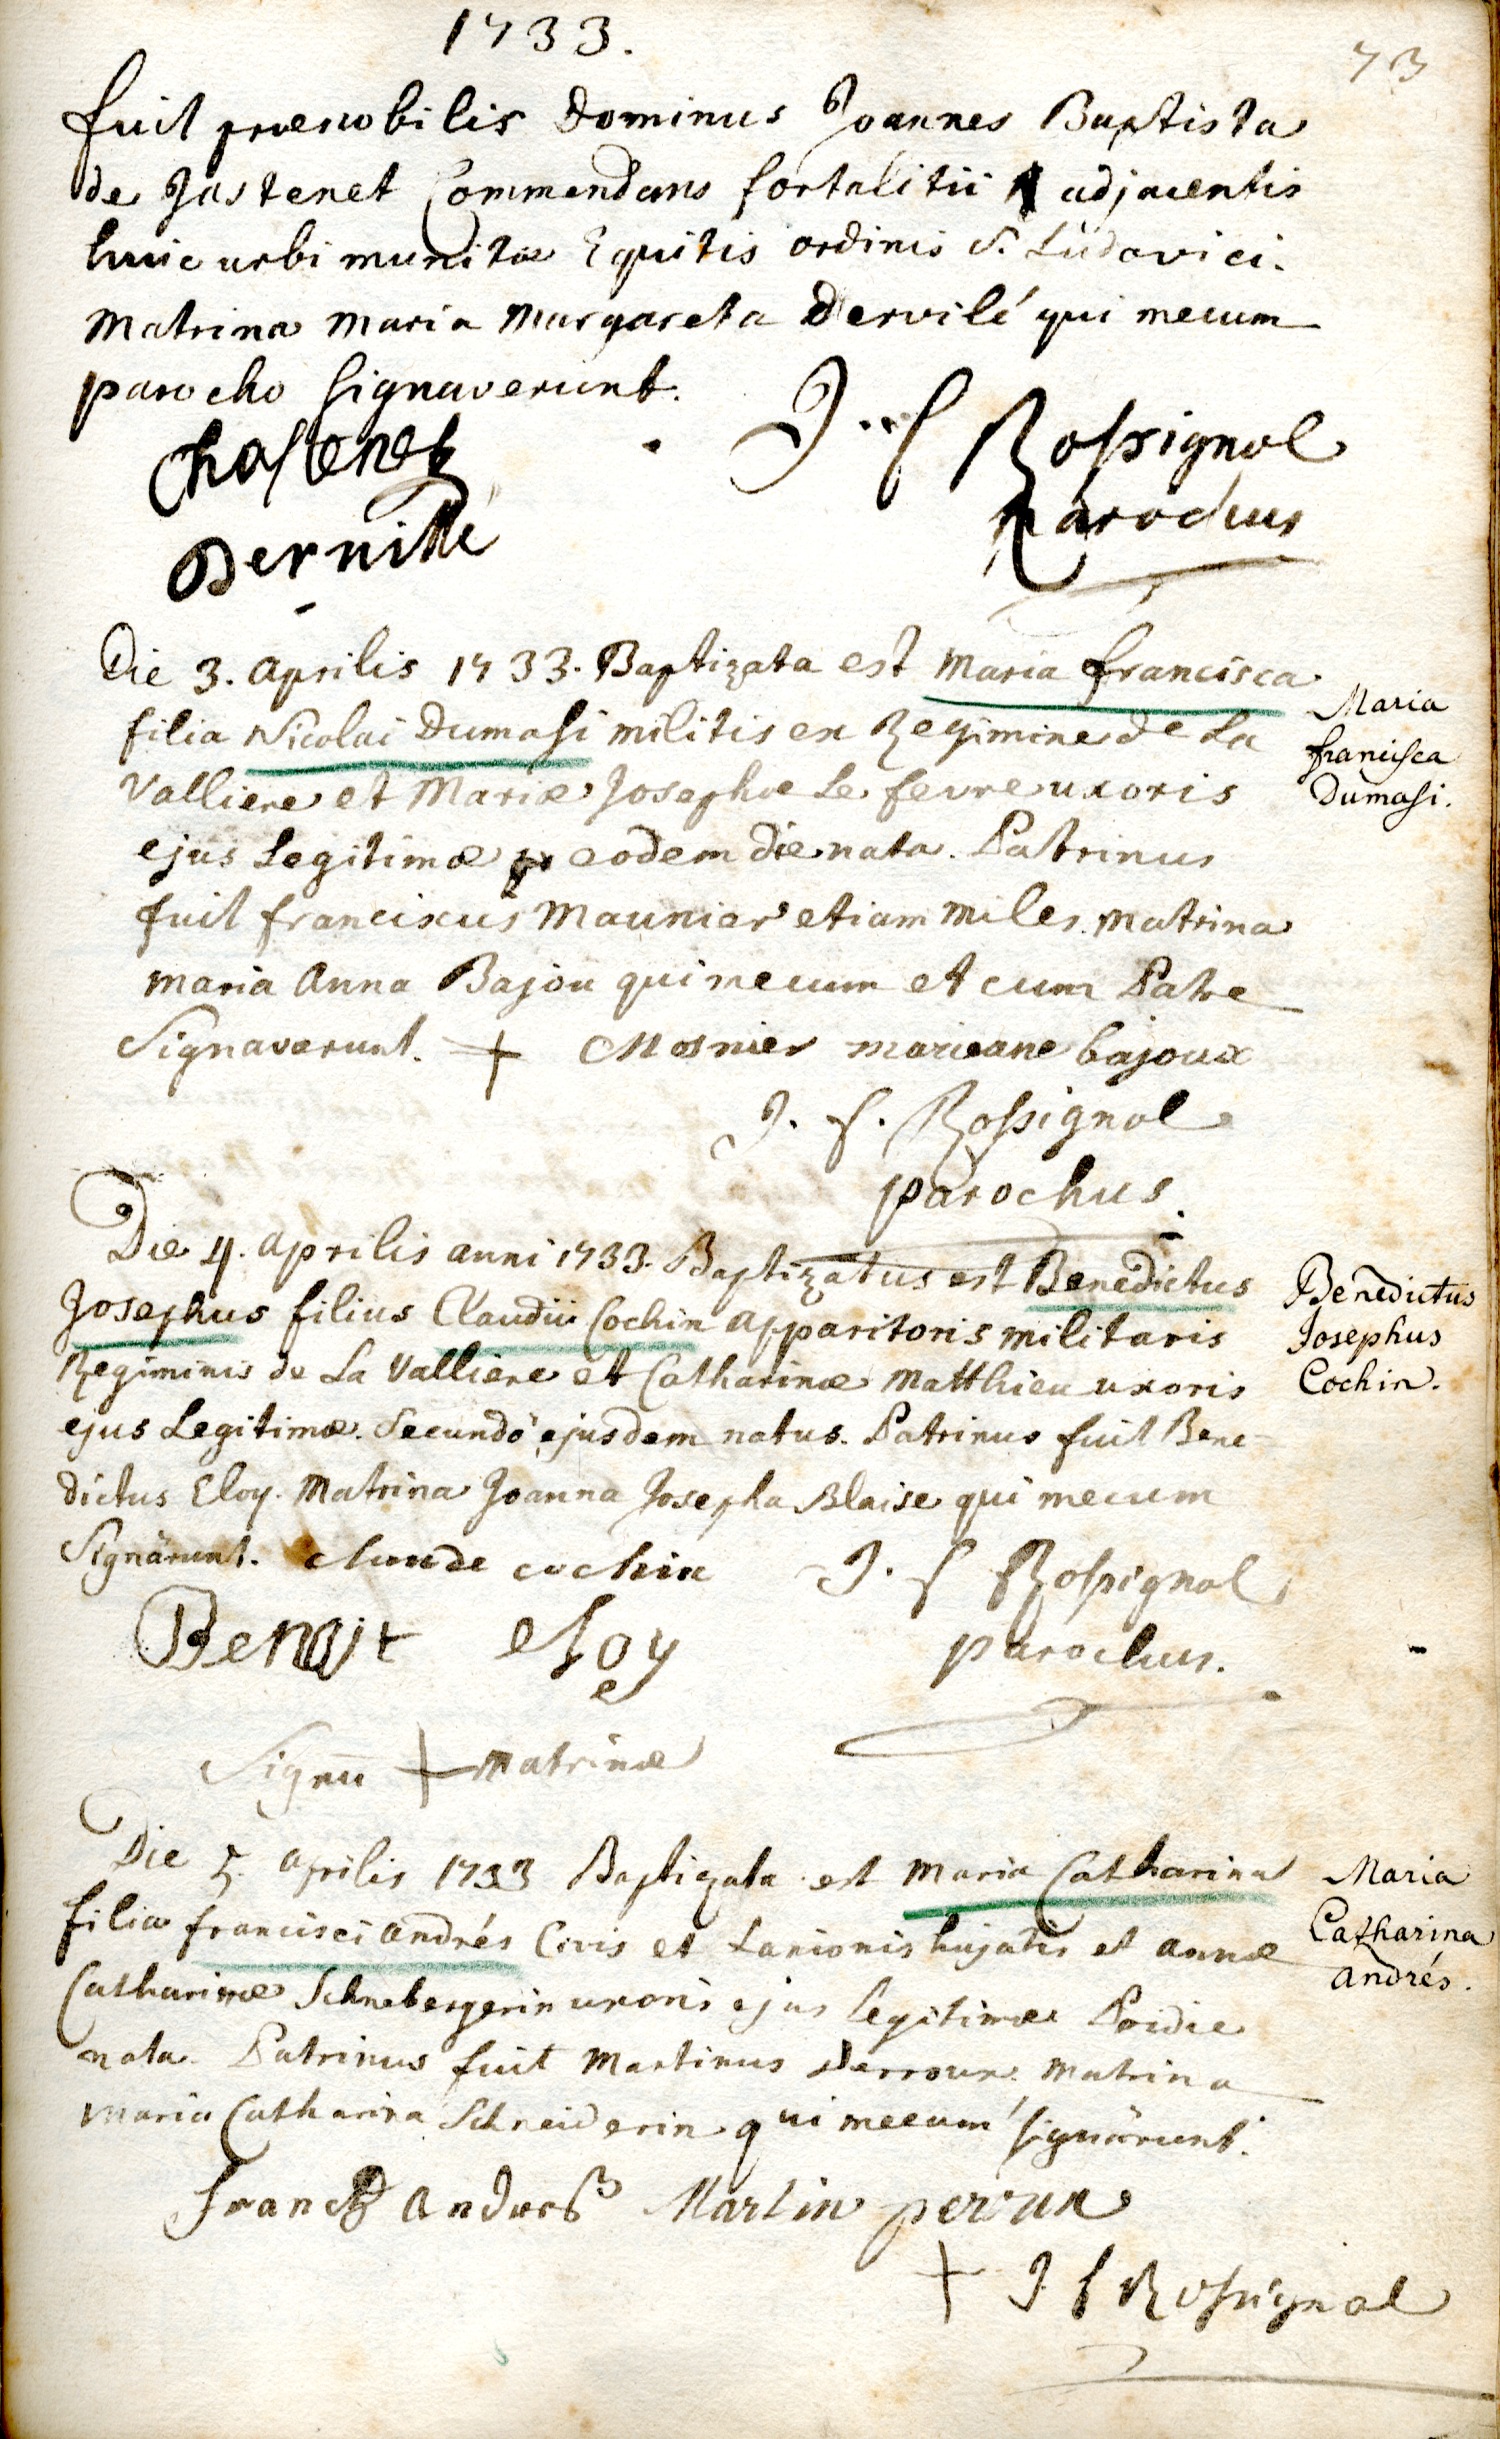 1733.
73
fuit praenobilis Dominus Joannes Baptista
de Jastenet Commendans fortalitii adjacentis
huic urbi munitae Equitis ordinis S. Ludovici.
Matrina Maria Margareta Dervilé qui mecum
parocho signaverunt.
Chastenet
J. f Rossignol
parochus
Die 3. Aprilis 1733. Baptizata est Maria francisca
filia Nicolai Dumasi militis ex Regimine de La
Valliere et Mariae Josephae Le fevre uxoris
ejus Legitimae eodem die nata. Patrinus
fuit franciscus Maunier etiam miles. Matrina
Maria Anna Bajou qui mecum et cum Patre
Signaverunt. + Mosnier marieane bajoux
J. f. Rossignol
parochus.
Maria
francisca
Dumasi.
Die 4. Aprilis anni 1733. Baptizatus est Benedictus
Josephus filius Claudii Cochin Apparitoris militaris
Regiminis de La Valliere et Catharinae Matthieu uxoris
ejus Legitimae. Secundo ejusdem natus. Patrinus fuit Bene-
dictus Eloy. Matrina Joanna Josepha Blaise qui mecum
Signârunt. claude cochin
J. f Rossignol
parochus.
Benoit eloy
Signū + Matrinae
Benedictus
Josephus
Cochin.
Die 5. Aprilis 1733 Baptizata est Maria Catharina
filia francisci Andrés Civis et Lanionis hujatis et Annae
Catharinae Schnebergerin uxoris ejus Legitimae Pridie
nata. Patrinus fuit Martinus Matrina
Maria Catharina Schneiderin qui mecum signârunt.
Martin
+ J f Rossignol
Maria
Catharina
Andrés.